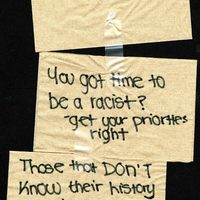 You got time to
be a racist?
-get your priorties
right
Those that DON'T
KNOW their history